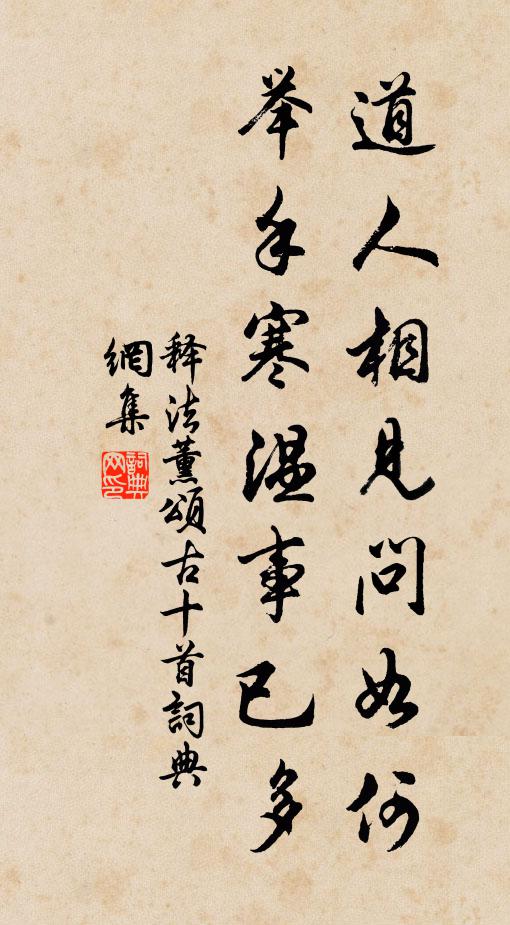 道人相見問如何
举手寒温事已多
释法薰頌古十首詞典
網集
詞典
网印